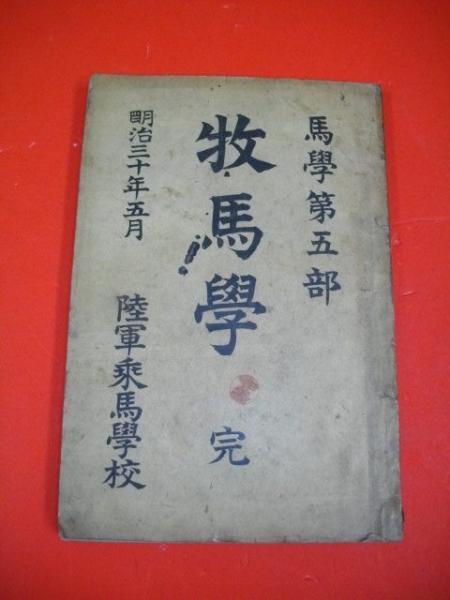 馬學第五部
牧馬學 完
明治三十年五月
陸軍乘馬學校